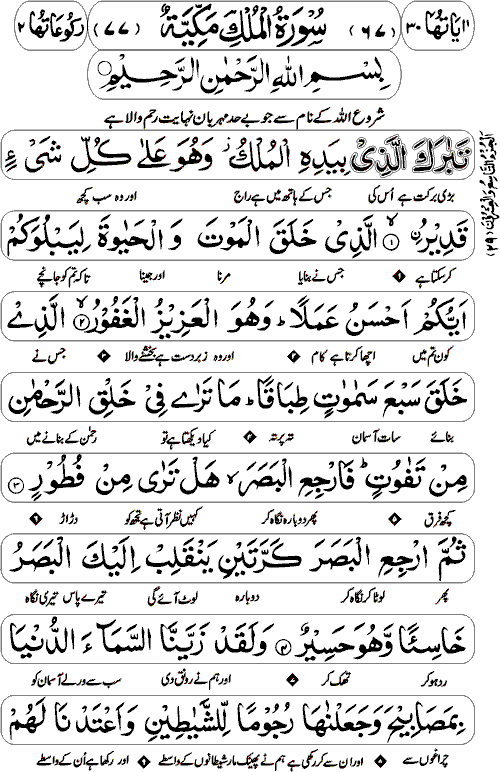 اٰيَاتُهَا ٣٠ (٦٧) سُوْرَةُ الْمُلْكِ مَكِّيَّةٌ (٧٧) رُكُوْعَاتُهَا ٢
بِسْمِ اللهِ الرَّحْمٰنِ الرَّحِيْمِ
شروع اللہ کے نام سے جو بے حد مہربان نہایت رحم والا ہے
تَبٰرَكَ الَّذِىْ بِيَدِهِ الْمُلْكُ وَهُوَ عَلٰى كُلِّ شَىْءٍ
بڑی برکت ہے اُس کی جس کے ہاتھ میں ہے راج اور وہ سب کچھ
قَدِيْرُ ۨ ﴿١﴾ الَّذِىْ خَلَقَ الْمَوْتَ وَالْحَيٰوةَ لِيَبْلُوَكُمْ
کرسکتا ہے جس نے بنایا مرنا اور جینا تاکہ تم کو جانچے
اَيُّكُمْ اَحْسَنُ عَمَلًا ؕ وَهُوَ الْعَزِيْزُ الْغَفُوْرُ ﴿٢﴾ الَّذِىْ
کون تم میں اچھا کرتا ہے کام اور وہ زبردست ہے بخشنے والا جس نے
خَلَقَ سَبْعَ سَمٰوٰتٍ طِبَاقًا ؕ مَا تَرٰى فِىْ خَلْقِ الرَّحْمٰنِ
بنائے سات آسمان تہ پر تہ کیا دیکھتا ہے تو رحمٰن کے بنانے میں
مِنْ تَفٰوُتٍ ؕ فَارْجِعِ الْبَصَرَ ۙ هَلْ تَرٰى مِنْ فُطُوْرٍ ﴿٣﴾
کچھ فرق پھر دوبارہ نگاہ کر کہیں نظر آتی ہے تجھ کو دراڑ
ثُمَّ ارْجِعِ الْبَصَرَ كَرَّتَيْنِ يَنْقَلِبْ اِلَيْكَ الْبَصَرُ
پھر لوٹا کر نگاہ کر دوبارہ لوٹ آئے گی تیرے پاس تیری نگاہ
خَاسِئًا وَّهُوَ حَسِيْرٌ ﴿٤﴾ وَلَقَدْ زَيَّنَّا السَّمَآءَ الدُّنْيَا
رد ہوکر تھک کر اور ہم نے رونق دی سب سے ورلے آسمان کو
بِمَصَابِيْحَ وَجَعَلْنٰهَا رُجُوْمًا لِّلشَّيٰطِيْنِ وَاَعْتَدْنَا لَهُمْ
چراغوں سے اور ان سے کر رکھی ہے ہم نے پھینک مار شیطانوں کے واسطے اور رکھا ہے اُن کے واسطے